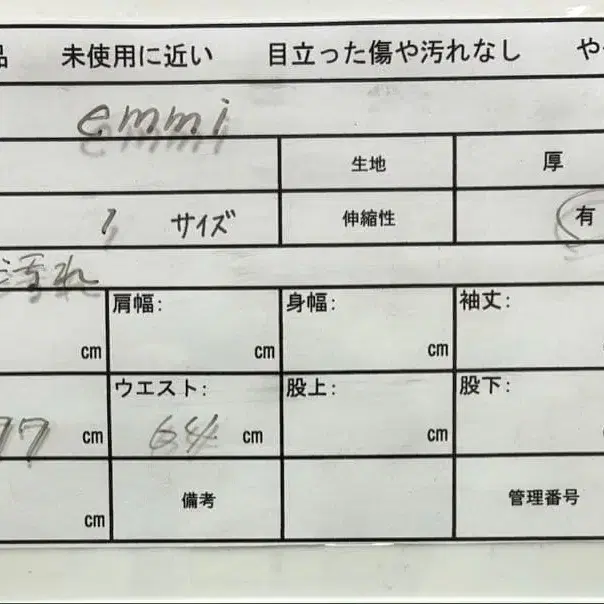 品 未使用に近い 目立った傷や汚れなし や
emmi
生地 厚
1 サイズ 伸縮性 有
汚れ
肩幅: 身幅: 袖丈:
cm cm cm
ウエスト: 股上: 股下:
77 cm 64 cm cm
備考 管理番号
cm